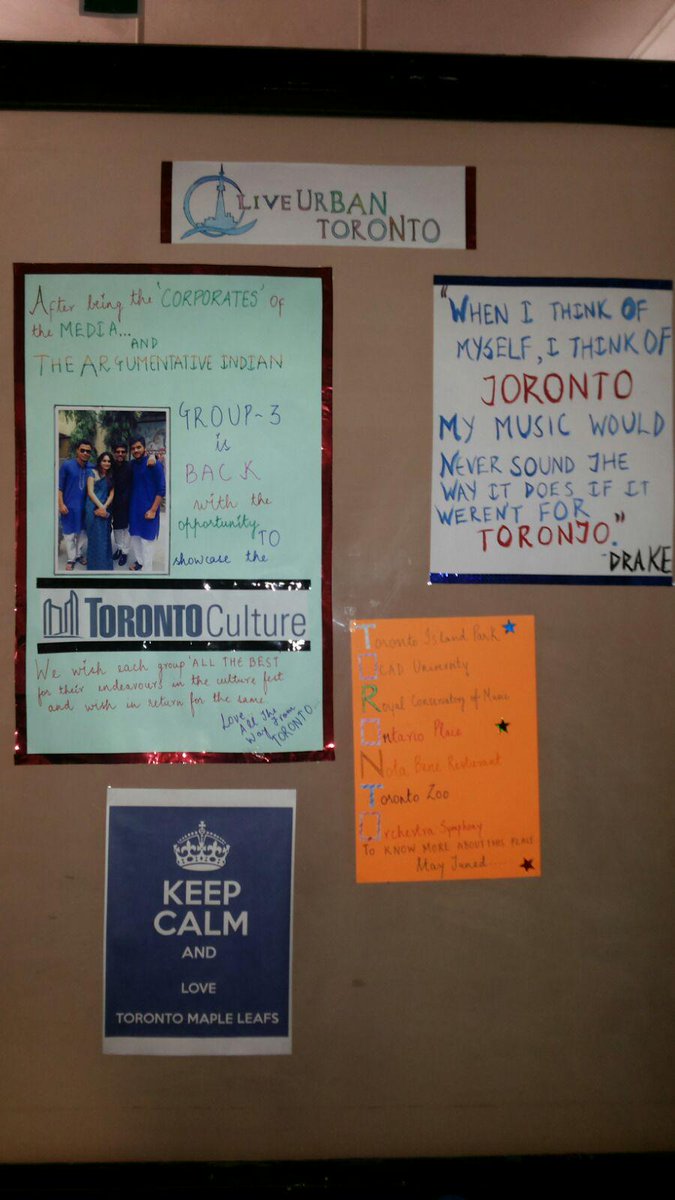 LIVE URBAN
TORONTO
After being the 'CORPORATES' Of
the MEDIA...
AND
THE ARGUMENTATIVE INDIAN
GROUP-3
is
BACK
with the
opportunity TO
showcase the
TORONTO Culture
We wish each group 'ALL THE BEST
for their endeavours in the culture fest
and wish in return for the same.
Love
All The
Way From
TORONTO...
"WHEN I THINK OF
MYSELF, I THINK OF
TORONTO
MY MUSIC WOULD
NEVER SOUND THE
WAY IT DOES IF IT
WERENT FOR
TORONTO."
-DRAKE
Toronto Island Park
OCAD University
Royal Conservatory of Music
Ontario Place
Nota Bene Resturant
Toronto Zoo
Orchestra Symphony
TO KNOW MORE ABOUT THIS PLACE
KEEP
CALM
AND
LOVE
TORONTO MAPLE LEAFS